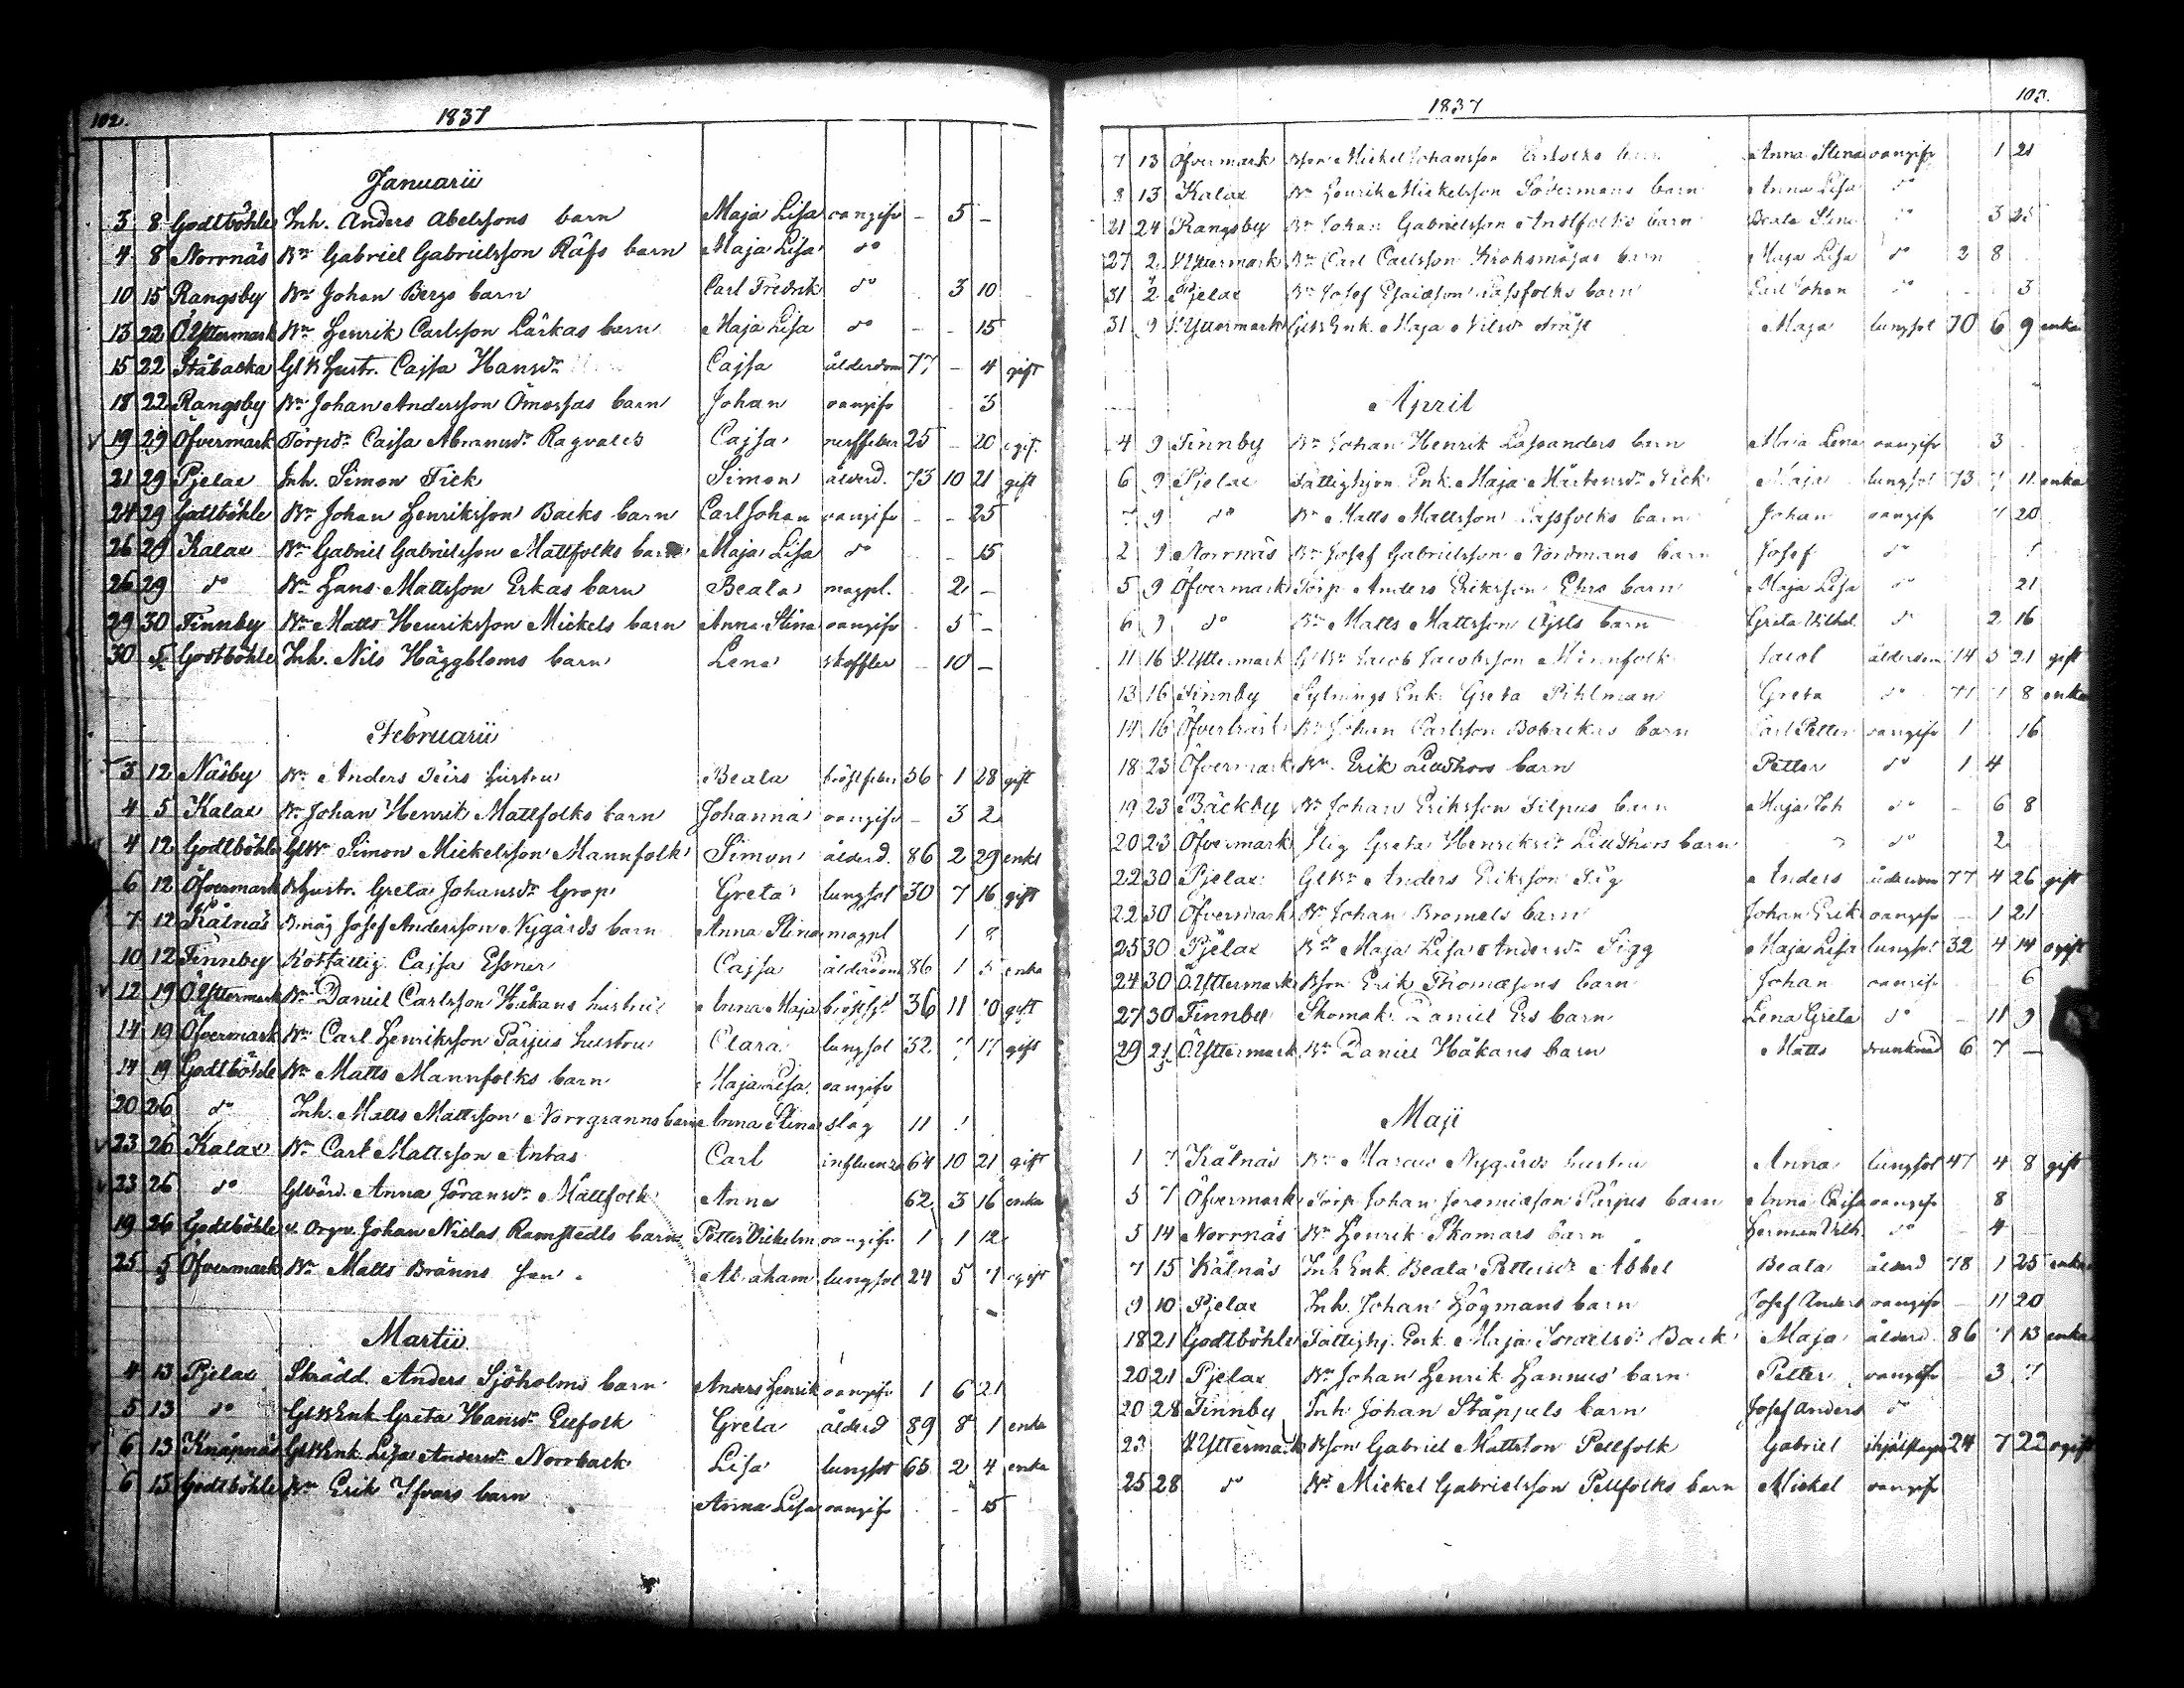 102.
1837
Januarii
3 8 Godtböhle Inh. Anders Abelssons barn Maja Lisa oangifv - 5 -
4 8 Norrnäs Bn Gabriel Gabrielsson Räfs barn Maja Lisa do
10 15 Rangsby Bn Johan Bergs barn Carl Fredrik do 3 10
13 22 Ö.Yttermark Bn Henrik Carlsson Lärkas barn Maja Lisa do - - 15
15 22 Ståbacka GlB Hustr. Cajsa Hansdr Cajsa ålderdom 77 - 4 gift
18 22 Rangsby Bn Johan Andersson Ömossas barn Johan oangifv - 3
19 29 Öfvermark Torpdr Caisa Abramsdr Ragvals Cajsa 25 - 20 ogift
21 29 Pjelax Inh. Simon Fick Simon ålderd. 73 10 21 gift
24 29 Gottböhle Bn Johan Henriksson Backs barn Carl Johan oangifv - - 25
26 29 Kalax Bn Gabriel Gabrielsson Mattfolks barn Maja Lisa do - 15
26 29 do Bn Hans Mattsson Erkas barn Beata magpl. 2 -
29 30 Finnby Bn Matts Henriksson Mickels barn Anna Stina oangifv - 5 -
30 5 Godtböhle Inh. Nils Häggbloms barn Lena skoffler - 10 -
Februarii
3 12 Näsby Bn Anders Teirs hustru Beata bröstfeber 56 1 28 gift
4 5 Kalax Bn Johan Henrik Mattfolks barn Johanna oangifv - 3 2
4 12 Godtböhle GlBn Simon Mickelsson Mannfolk Simon ålderd. 86 2 29 enkl
6 12 Öfvermark BHustr. Greta Johansdr Grop Greta lungsot 30 7 16 gift
7 12 Kåtnäs Bmåg Josef Andersson Nygårds barn Anna Stina magpl 1
10 12 Finnby Rotfattig Cajsa Essner Cajsa ålderdom 86 1 5 enka
12 19 Ö.Yttermark Bn Daniel Carlsson Håkans hustru Anna Maja 36 11 gift
14 19 Öfvermark Bn Carl Henriksson Pärjus hustru Clara lungsot 32 17 gift
14 19 Godtböhle Bn Matts Mannfolks barn Maja Lisa oangifv
20 26 do Inh. Matts Mattsson Norrgranns barn Anna Stina slag 11
23 26 Kalax Bn Carl Mattsson Antas Carl influenza 64 10 21 gift
23 26 do Anna Göransdr Mattfolk Anna 62 3 16 enka
19 26 Godtböhle v. Orgn. Johan Niclas Ramstedts barn Petter Vilhelm oangifv 1 1 12
25 5 Öfvermark Bn Matts Bränns son Abraham lungsot 24 5 7 ogift
Martii
4 13 Pjelax Skrädd. Anders Sjöholms barn Anders Henrik oangifv 1 6 21
5 13 do GlBEnk Greta Hansdr Eufolk Greta ålderd 89 8 1 enka
6 13 Knåpnäs GlBEnk Lisa Andersdr Norrback Lisa lungsot 65 2 4 enka
6 13 Godtböhle Bn Erik Ifvars barn Anna Lisa oangifv - - 15
103.
1837
7 13 Öfvermark Bson Mickel Johansson barn Anna Stina oangifv 1 21
8 13 Kalax Bn Henrik Mickelsson Södermans barn Anna Lisa do
21 24 Rangsby Bn Johan Gabrielsson barn Beata Stina do 3 25
27 2 Yttermark Bn Carl Carlsson Krohsmåsas barn Maja Lisa do 2 8
31 2 Pjelax Bn Josef Esaiasson Lassfolks barn Carl Johan do 3
31 9 Yttermark GlBEnk. Maja Nilsdr Maja lungsot 70 6 9 enka
April
4 9 Finnby Bn Johan Henrik Lassanders barn Maja Lena oangifv 3
6 9 Pjelax Fattighjon Enk. Maja Mårtensdr Maja lungsot 73 11 enka
7 9 do Bn Matts Mattsson Lassfolks barn Johan oangifv 20
2 9 Norrnäs Bn Josef Gabrielsson Nordmans barn Josef do
5 9 Öfvermark Torp Anders Eriksson Ehrs barn Maja Lisa do 21
6 9 do Bn Matts Mattsson barn Greta Vilhel. do 2 16
11 16 Yttermark GlBn Jacob Jacobsson Minnfolk Jacob ålderdom 74 3 21 gift
13 16 Finnby Sytnings Enk. Greta Pihlman Greta do 71 8 enka
14 16 Öfverträsk Bn Johan Carlsson Bobackas barn Carl Petter oangifv 1 16
18 23 Öfvermark Bn Erik Lillthors barn Petter do 1 4
19 23 Bäckby Bn Johan Eriksson Filpus barn Maja Joh do - 6 8
20 23 Öfvermark Greta Henriksdr Lillthors barn do 2
22 30 Pjelax GlBn Anders Eriksson Sig Anders ålderdom 77 4 26 gift
22 30 Öfvermark Bn Johan Bromels barn Johan Erik oangifv - 1 21
25 30 Pjelax Maja Lisa Andersdr Sigg Maja Lisa lungsot 32 4 14 ogift
24 30 Ö.Yttermark Bson Erik Thomassons barn Johan oangifv 6
27 30 Finnby Skomak. Daniel Ers barn Lena Greta do - 11 9
29 21 Ö.Yttermark Bn Daniel Håkans barn Matts drunknad 6 7 -
Maji
1 7 Kåtnäs Bn Marcus Nygårds hustru Anna lungsot 47 4 8 gift
5 7 Öfvermark Torp Johan Jeremiasson Pärjus barn Anna Caisa oangifv 8
5 14 Norrnäs Bn Henrik Skomars barn Herman Vilh. do - 4
7 15 Kåtnäs Inh Enk. Beata Pettersdr Abbel Beata ålderd 78 1 25 enka
9 10 Pjelax Inh. Johan Högmans barn Josef Anders oangifv - 11 20
18 21 Godtböhle Fattighj. Enk. Maja Israelsdr Back Maja ålderd. 86 7 13 enka
20 21 Pjelax Bn Johan Henrik Hannus barn Petter oangifv 3
20 28 Finnby Inh. Johan Stäppels barn Josef Anders do
23 Yttermark Bson Gabriel Mattsson Pellfolk Gabriel 24 7 22 ogift
25 28 do Bn Mickel Gabrielsson Pellfolks barn Mickel oangifv